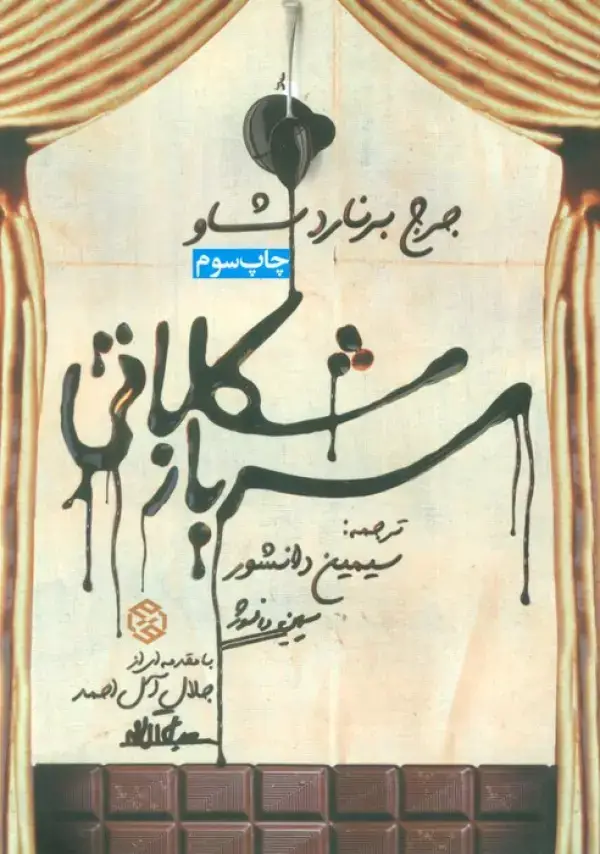 جرج برنارد شاو
چاپ سوم
سرباز شکلاتی
ترجمه:
سیمین دانشور
سیمین دانشور
با مقدمه ای از
جلال آل احمد